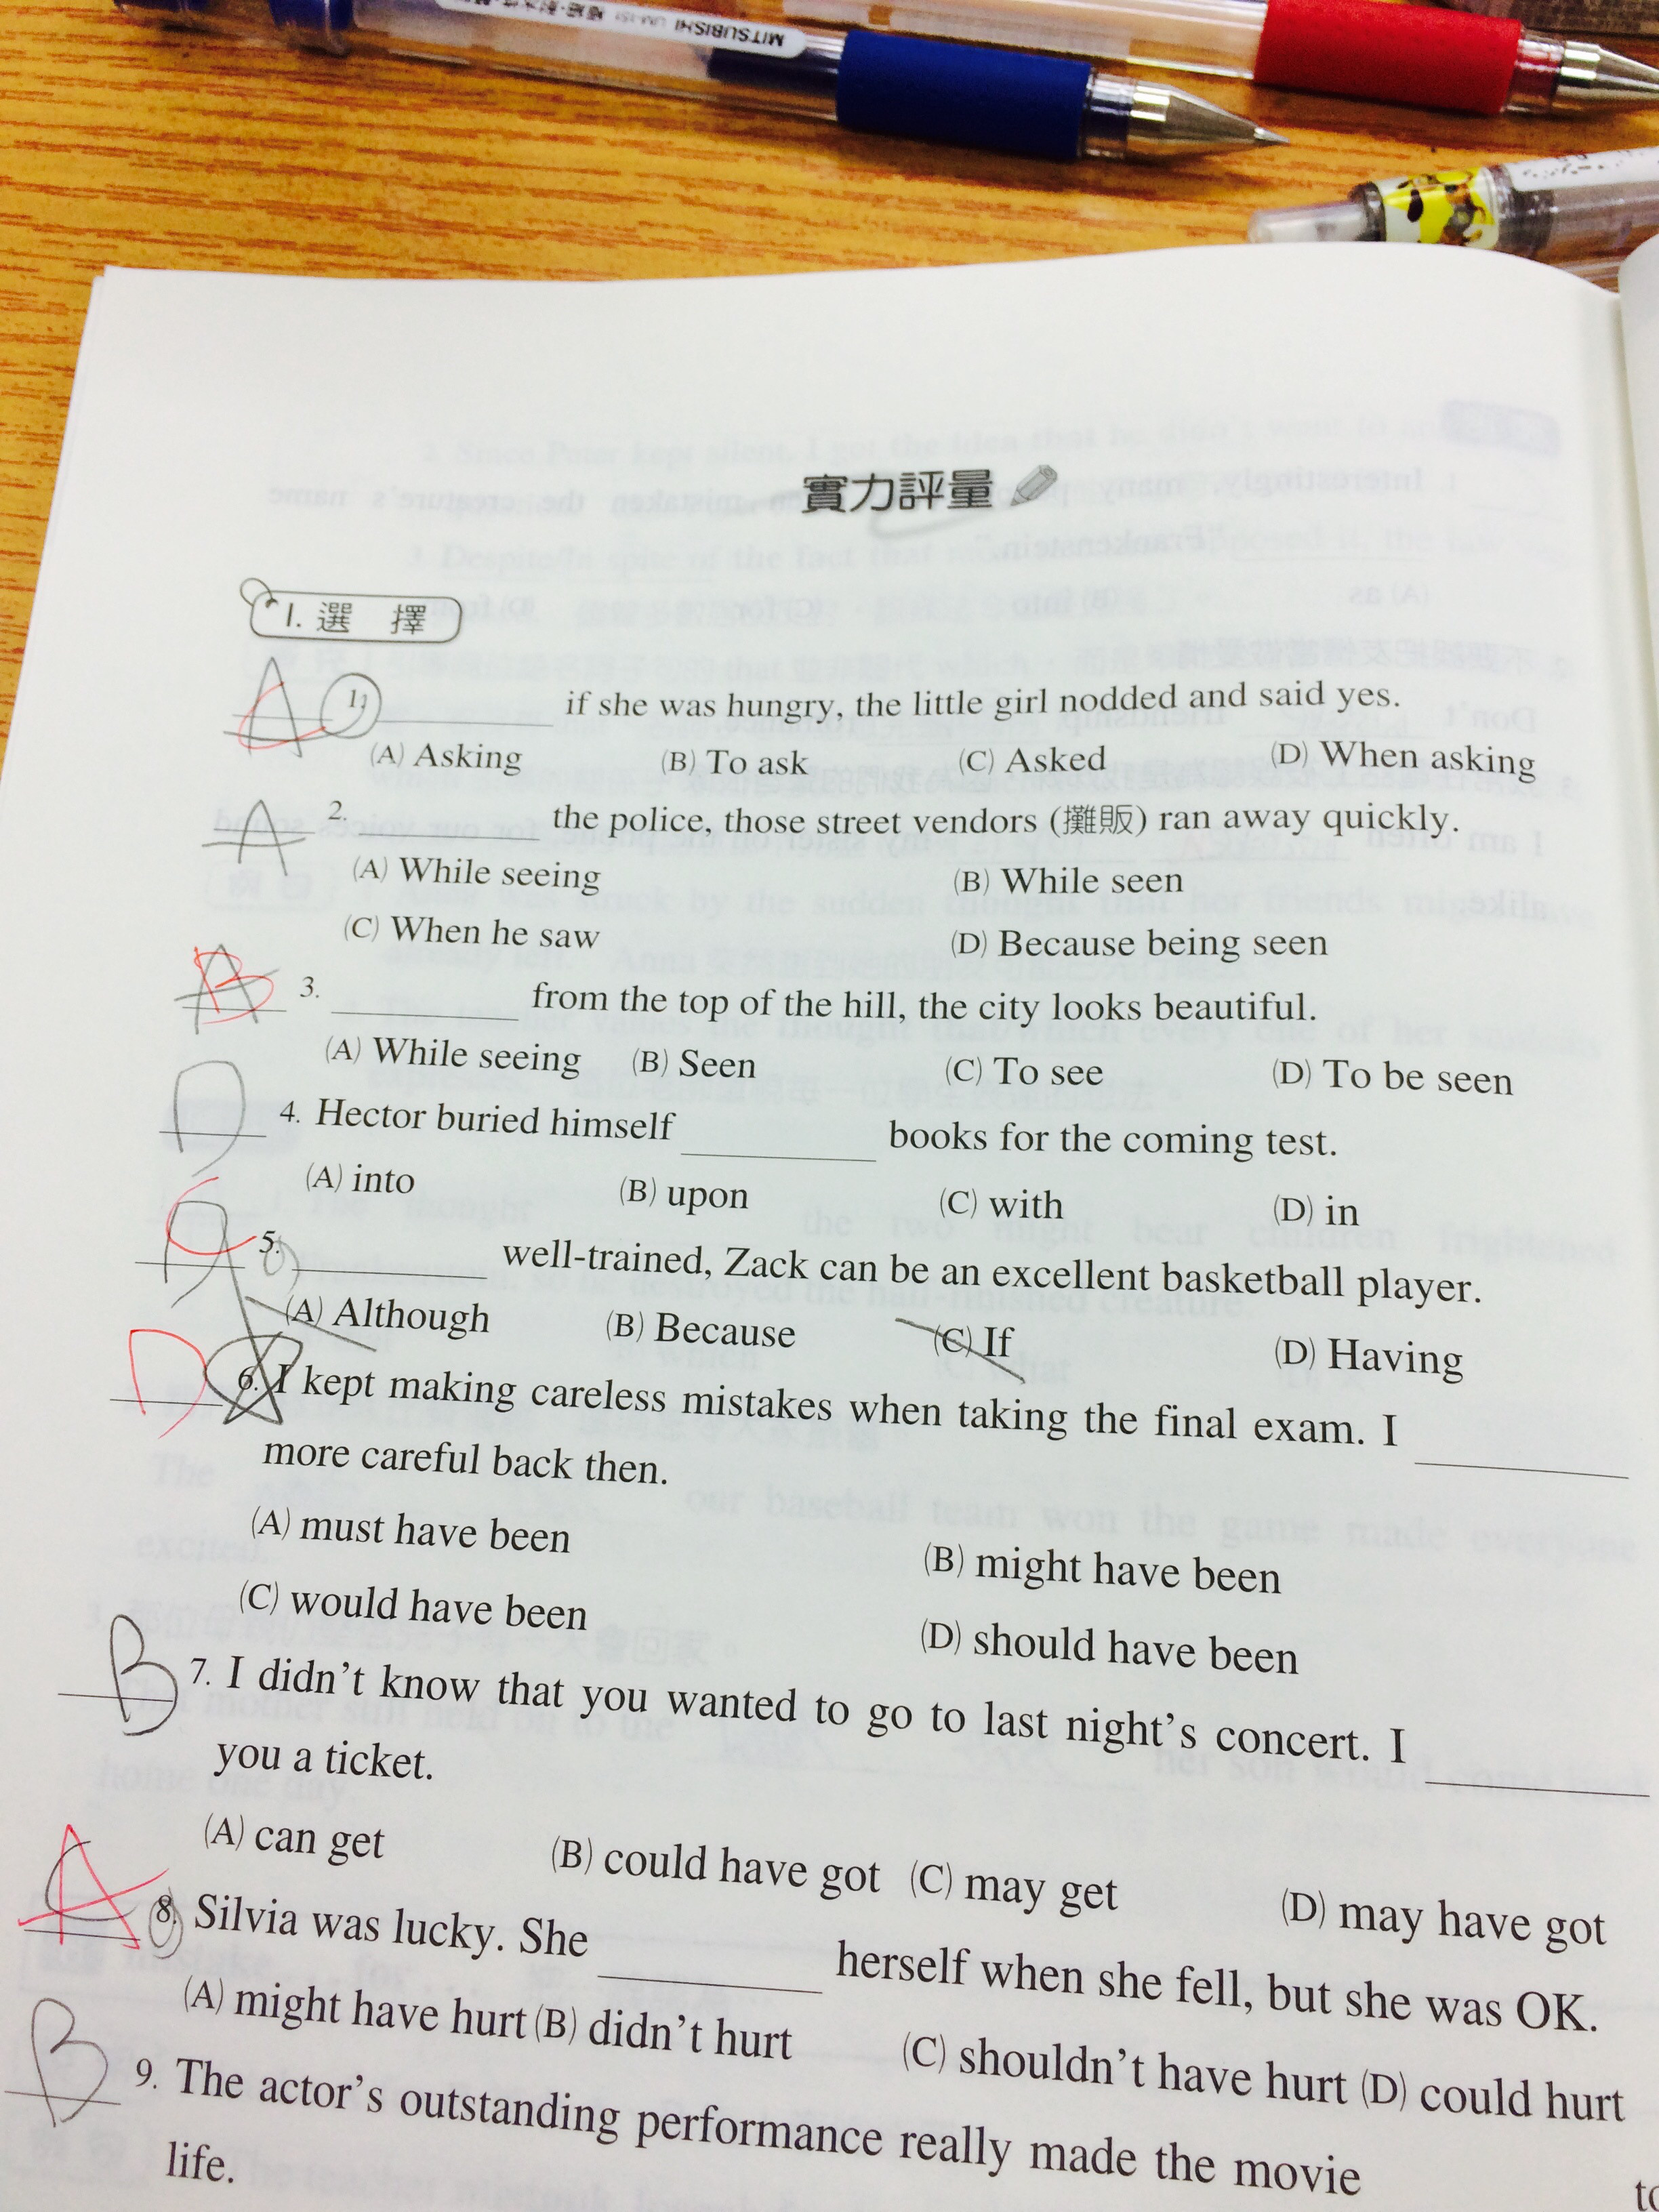 MITSUBISHI UM-151
實力評量
1. 選 擇
A C 1. ________ if she was hungry, the little girl nodded and said yes.
(A) Asking (B) To ask (C) Asked (D) When asking
A 2. ________ the police, those street vendors (攤販) ran away quickly.
(A) While seeing (B) While seen
(C) When he saw (D) Because being seen
A B 3. ________ from the top of the hill, the city looks beautiful.
(A) While seeing (B) Seen (C) To see (D) To be seen
D 4. Hector buried himself ________ books for the coming test.
(A) into (B) upon (C) with (D) in
C 5. ________ well-trained, Zack can be an excellent basketball player.
(A) Although (B) Because (C) If (D) Having
D 6. I kept making careless mistakes when taking the final exam. I ________
more careful back then.
(A) must have been (B) might have been
(C) would have been (D) should have been
B 7. I didn't know that you wanted to go to last night's concert. I ________
you a ticket.
(A) can get (B) could have got (C) may get (D) may have got
C A 8. Silvia was lucky. She ________ herself when she fell, but she was OK.
(A) might have hurt (B) didn't hurt (C) shouldn't have hurt (D) could hurt
B 9. The actor's outstanding performance really made the movie
life.